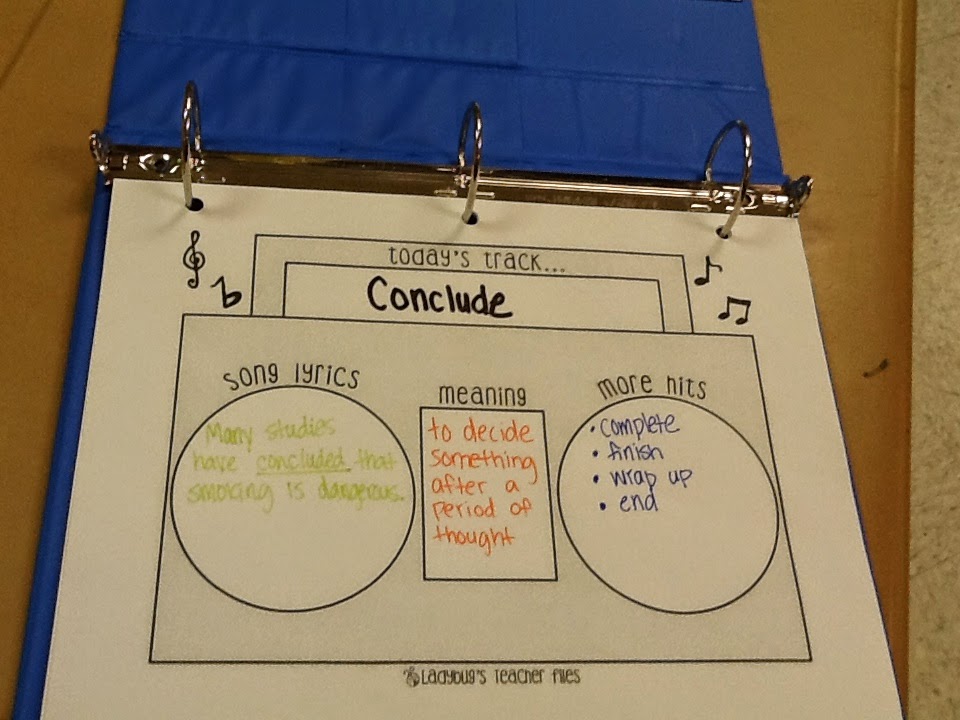 today's track...
Conclude
song lyrics
Many studies
have concluded that
smoking is dangerous.
meaning
to decide
something
after a
period of
thought
more hits
• complete
• finish
• wrap up
• end
Ladybug's Teacher Files